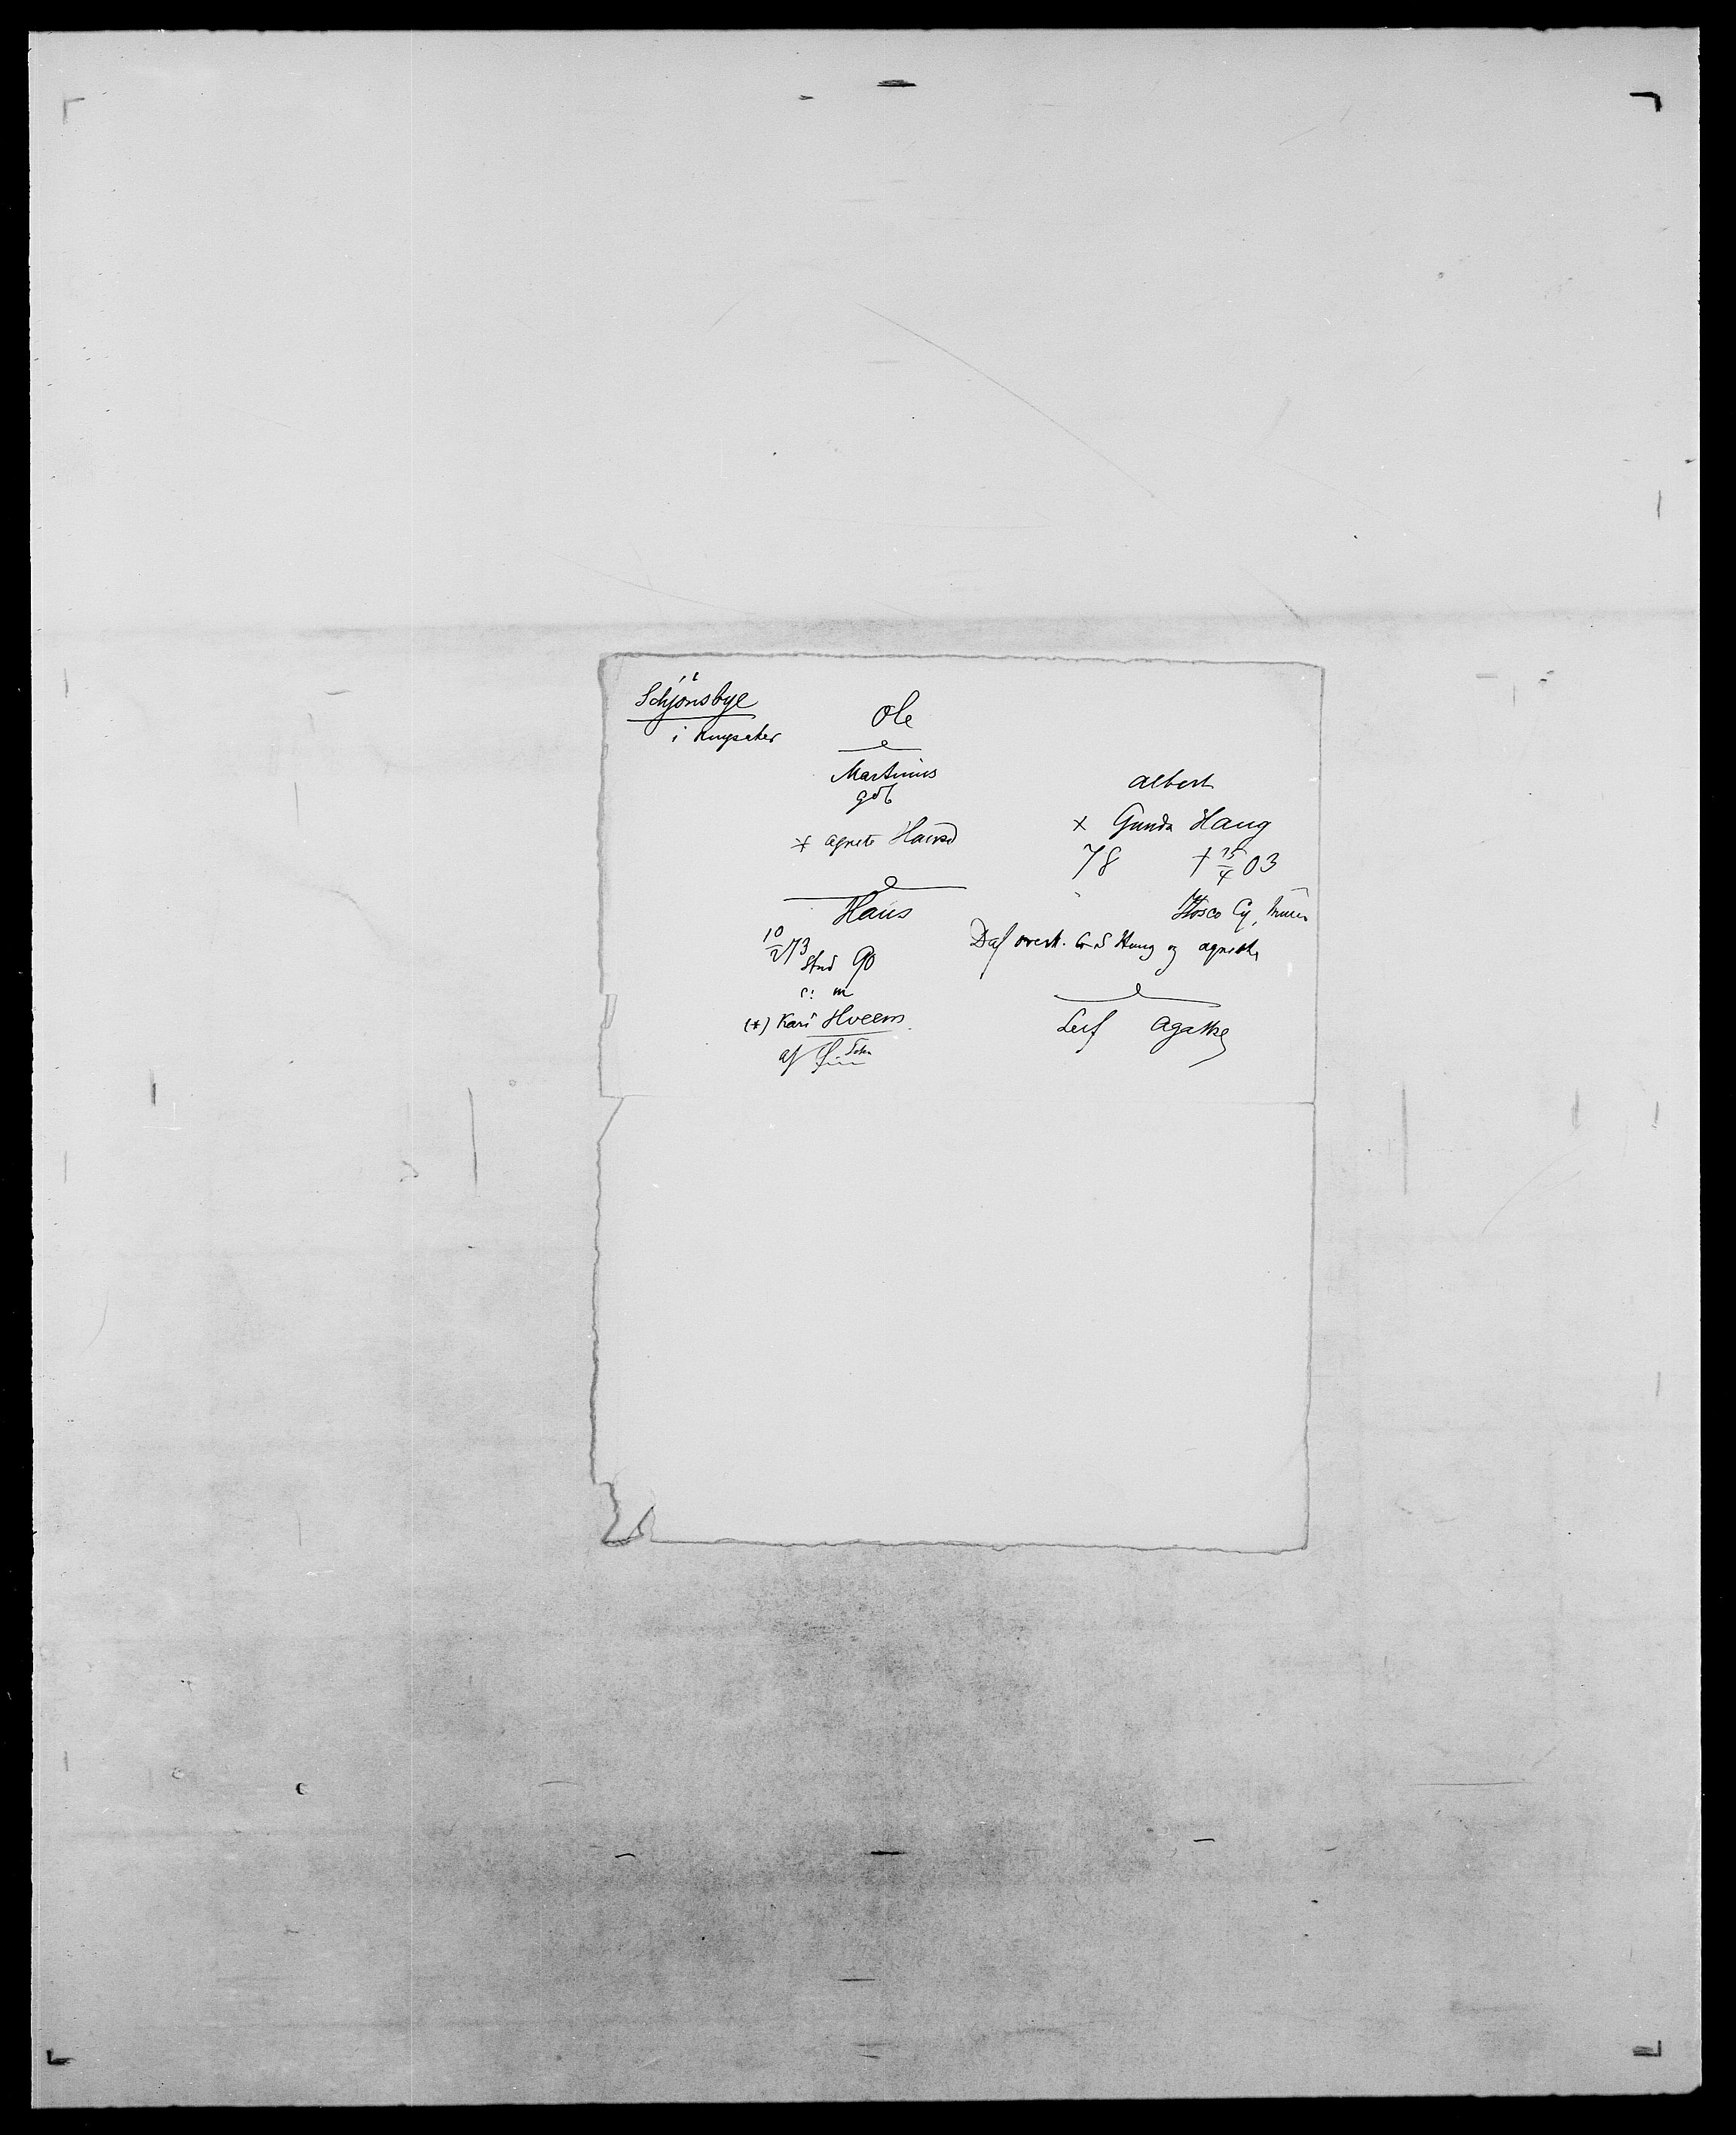 Schjønsbye
i Ringsaker
Ole
Martinus
gdb
× Agnete Hansd
Hans
10/2 73
Stud 90
c: m
(×) Kari Hveem
af
Albert
× Gunda Haug
78 † 15/4 03
Cy,
Daf Haug og Agnethe
Leif Agathe